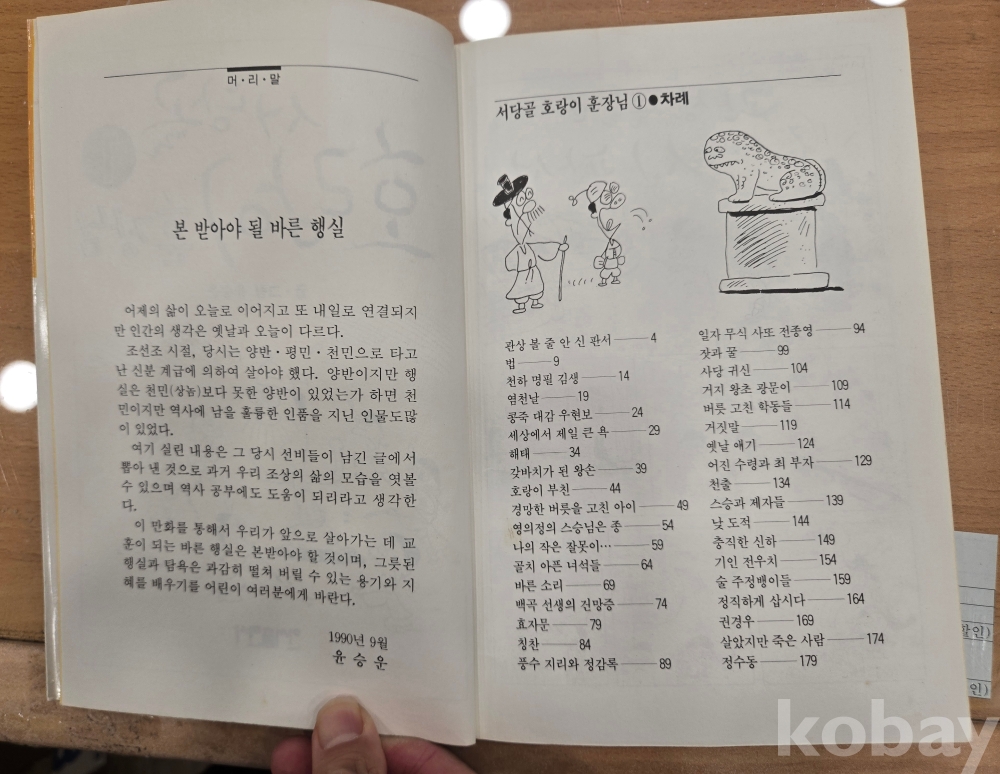 머·리·말
본 받아야 될 바른 행실
어제의 삶이 오늘로 이어지고 또 내일로 연결되지
만 인간의 생각은 옛날과 오늘이 다르다.
조선조 시절, 당시는 양반·평민·천민으로 타고
난 신분 계급에 의하여 살아야 했다. 양반이지만 행
실은 천민(상놈)보다 못한 양반이 있었는가 하면 천
민이지만 역사에 남을 훌륭한 인품을 지닌 인물도많
이 있었다.
여기 실린 내용은 그 당시 선비들이 남긴 글에서
뽑아 낸 것으로 과거 우리 조상의 삶의 모습을 엿볼
수 있으며 역사 공부에도 도움이 되리라고 생각한
다.
이 만화를 통해서 우리가 앞으로 살아가는 데 교
훈이 되는 바른 행실은 본받아야 할 것이며, 그릇된
행실과 탐욕은 과감히 떨쳐 버릴 수 있는 용기와 지
혜를 배우기를 어린이 여러분에게 바란다.
1990년 9월
윤승운
서당골 호랑이 훈장님 ①●차례
관상 볼 줄 안 신 판서 4
법 9
천하 명필 김생 14
염천날 19
콩죽 대감 우현보 24
세상에서 제일 큰 욕 29
해태 34
갖바치가 된 왕손 39
호랑이 부친 44
경망한 버릇을 고친 아이 49
영의정의 스승님은 종 54
나의 작은 잘못이… 59
골치 아픈 녀석들 64
바른 소리 69
백곡 선생의 건망증 74
효자문 79
칭찬 84
풍수 지리와 정감록 89
일자 무식 사또 전종영 94
잣과 꿀 99
사당 귀신 104
거지 왕초 광문이 109
버릇 고친 학동들 114
거짓말 119
옛날 얘기 124
어진 수령과 최 부자 129
천출 134
스승과 제자들 139
낮 도적 144
충직한 신하 149
기인 전우치 154
술 주정뱅이들 159
정직하게 삽시다 164
권경우 169
살았지만 죽은 사람 174
정수동 179
인)
kobay